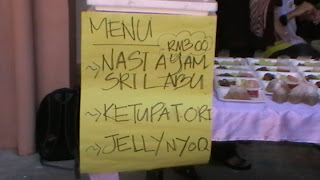 MENU
RM3.00
→ NASI AYAM
SRI LABU
→ KETUPAT ORI
→ JELLY NYOR